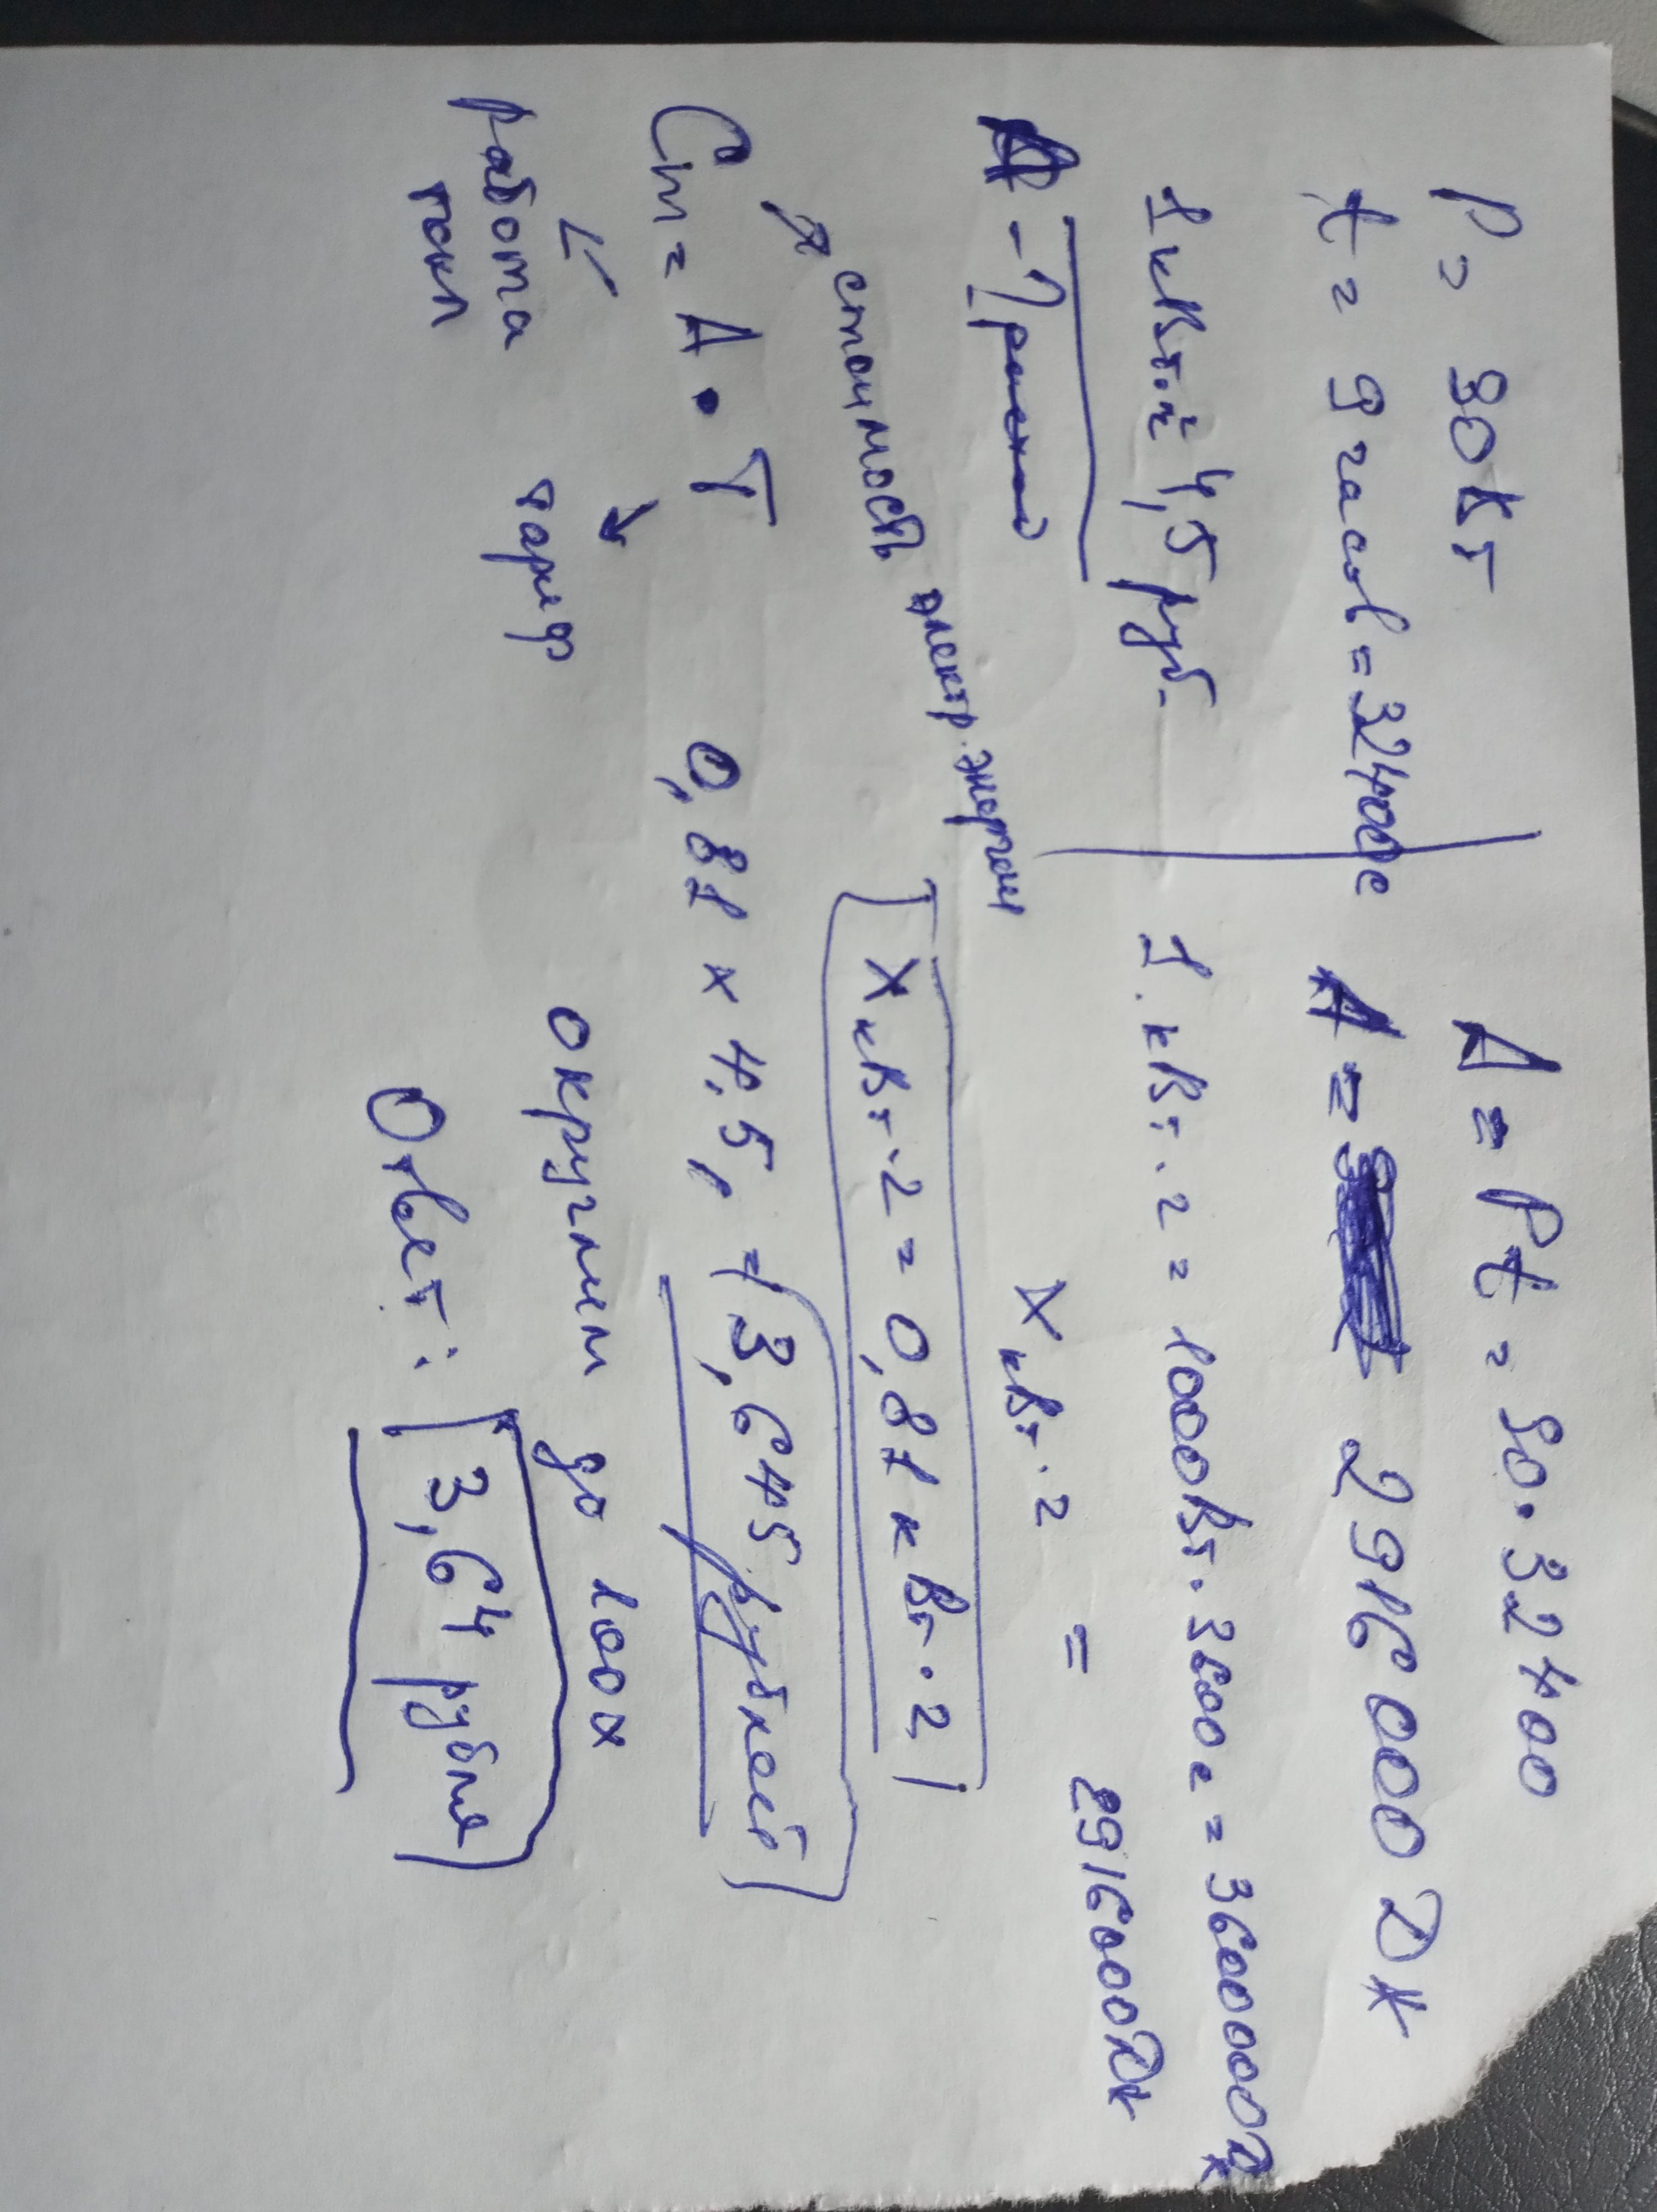 P = 90 Вт
t = 9 часов = 32400с
1 кВт.ч = 4,5 руб.
A - ?
A = Pt = 90 · 32400
A = 2916000 Дж
1 кВт · ч = 1000 Вт · 3600 с = 3600000 Дж
x кВт · ч = 2916000 Дж
стоимость электр. энергии
x кВт · ч = 0,81 кВт · ч
Ст = A · T
работа тока
тариф
0,81 x 4,5, = 3,645 рублей
округлим до 100х
Ответ: 3,64 рубля